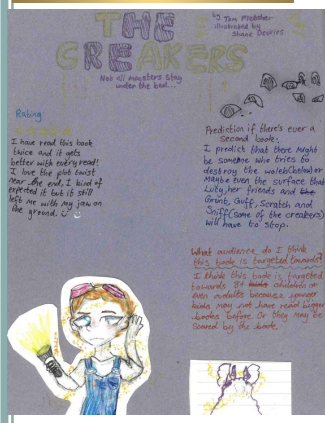 THE
CREAKERS
by Tom Fletcher
illustrated by
Shane Devries
Not all monsters stay
under the bed...
Rating
I have read this book
twice and it gets
better with every read!
I love the plot twist
near the end, I kind of
expected it but it still
left me with my jaw on
the ground.
Prediction if there's ever a
second book:
I predict that there might
be someone who tries to
destroy the woleb (below) or
maybe even the surface that
Lucy, her friends and
Grunt, Guff, Scratch and
Sniff (some of the creakers)
will have to stop.
What audience do I think
this book is targeted towards?
I think this book is targeted
towards 8+ children or
even adults because younger
kids may not have read bigger
books before. Or they may be
scared by the book.